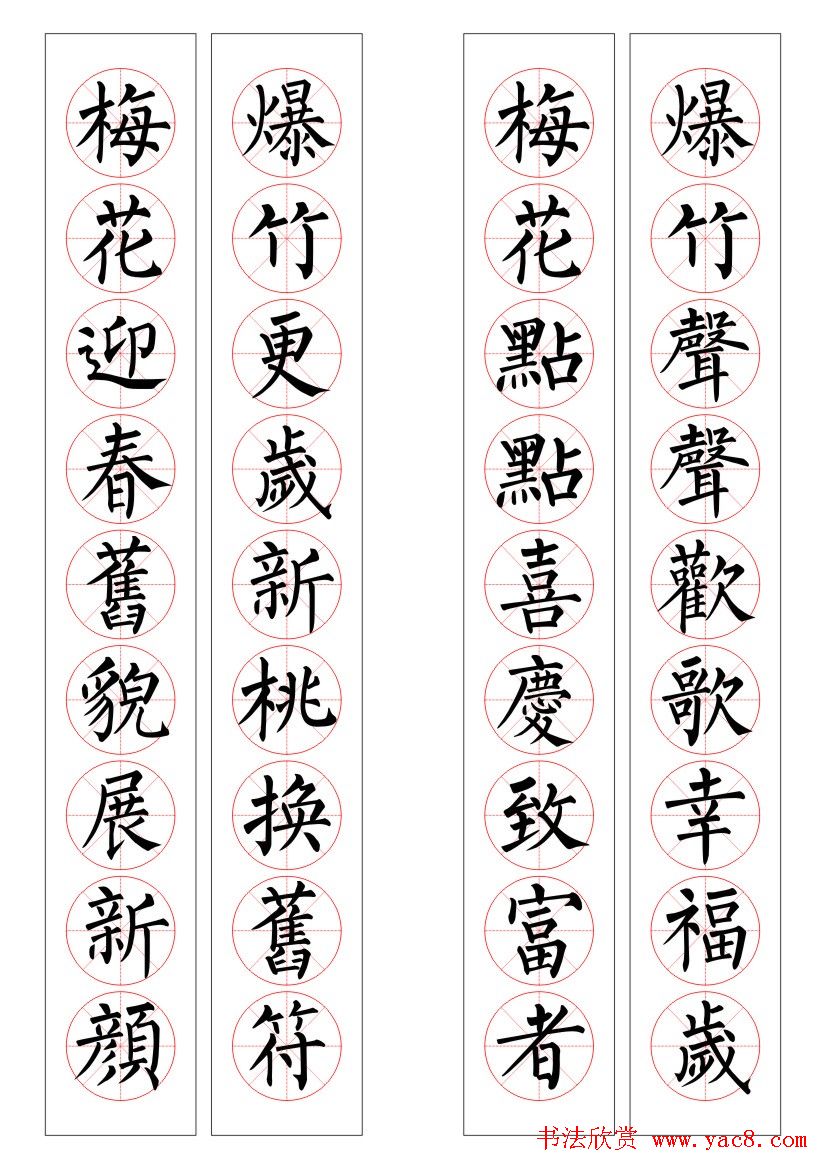 爆竹聲聲歡歌幸福歲
梅花點點喜慶致富者
爆竹更歲新桃換舊符
梅花迎春舊貌展新顏
书法欣赏 www.yac8.com